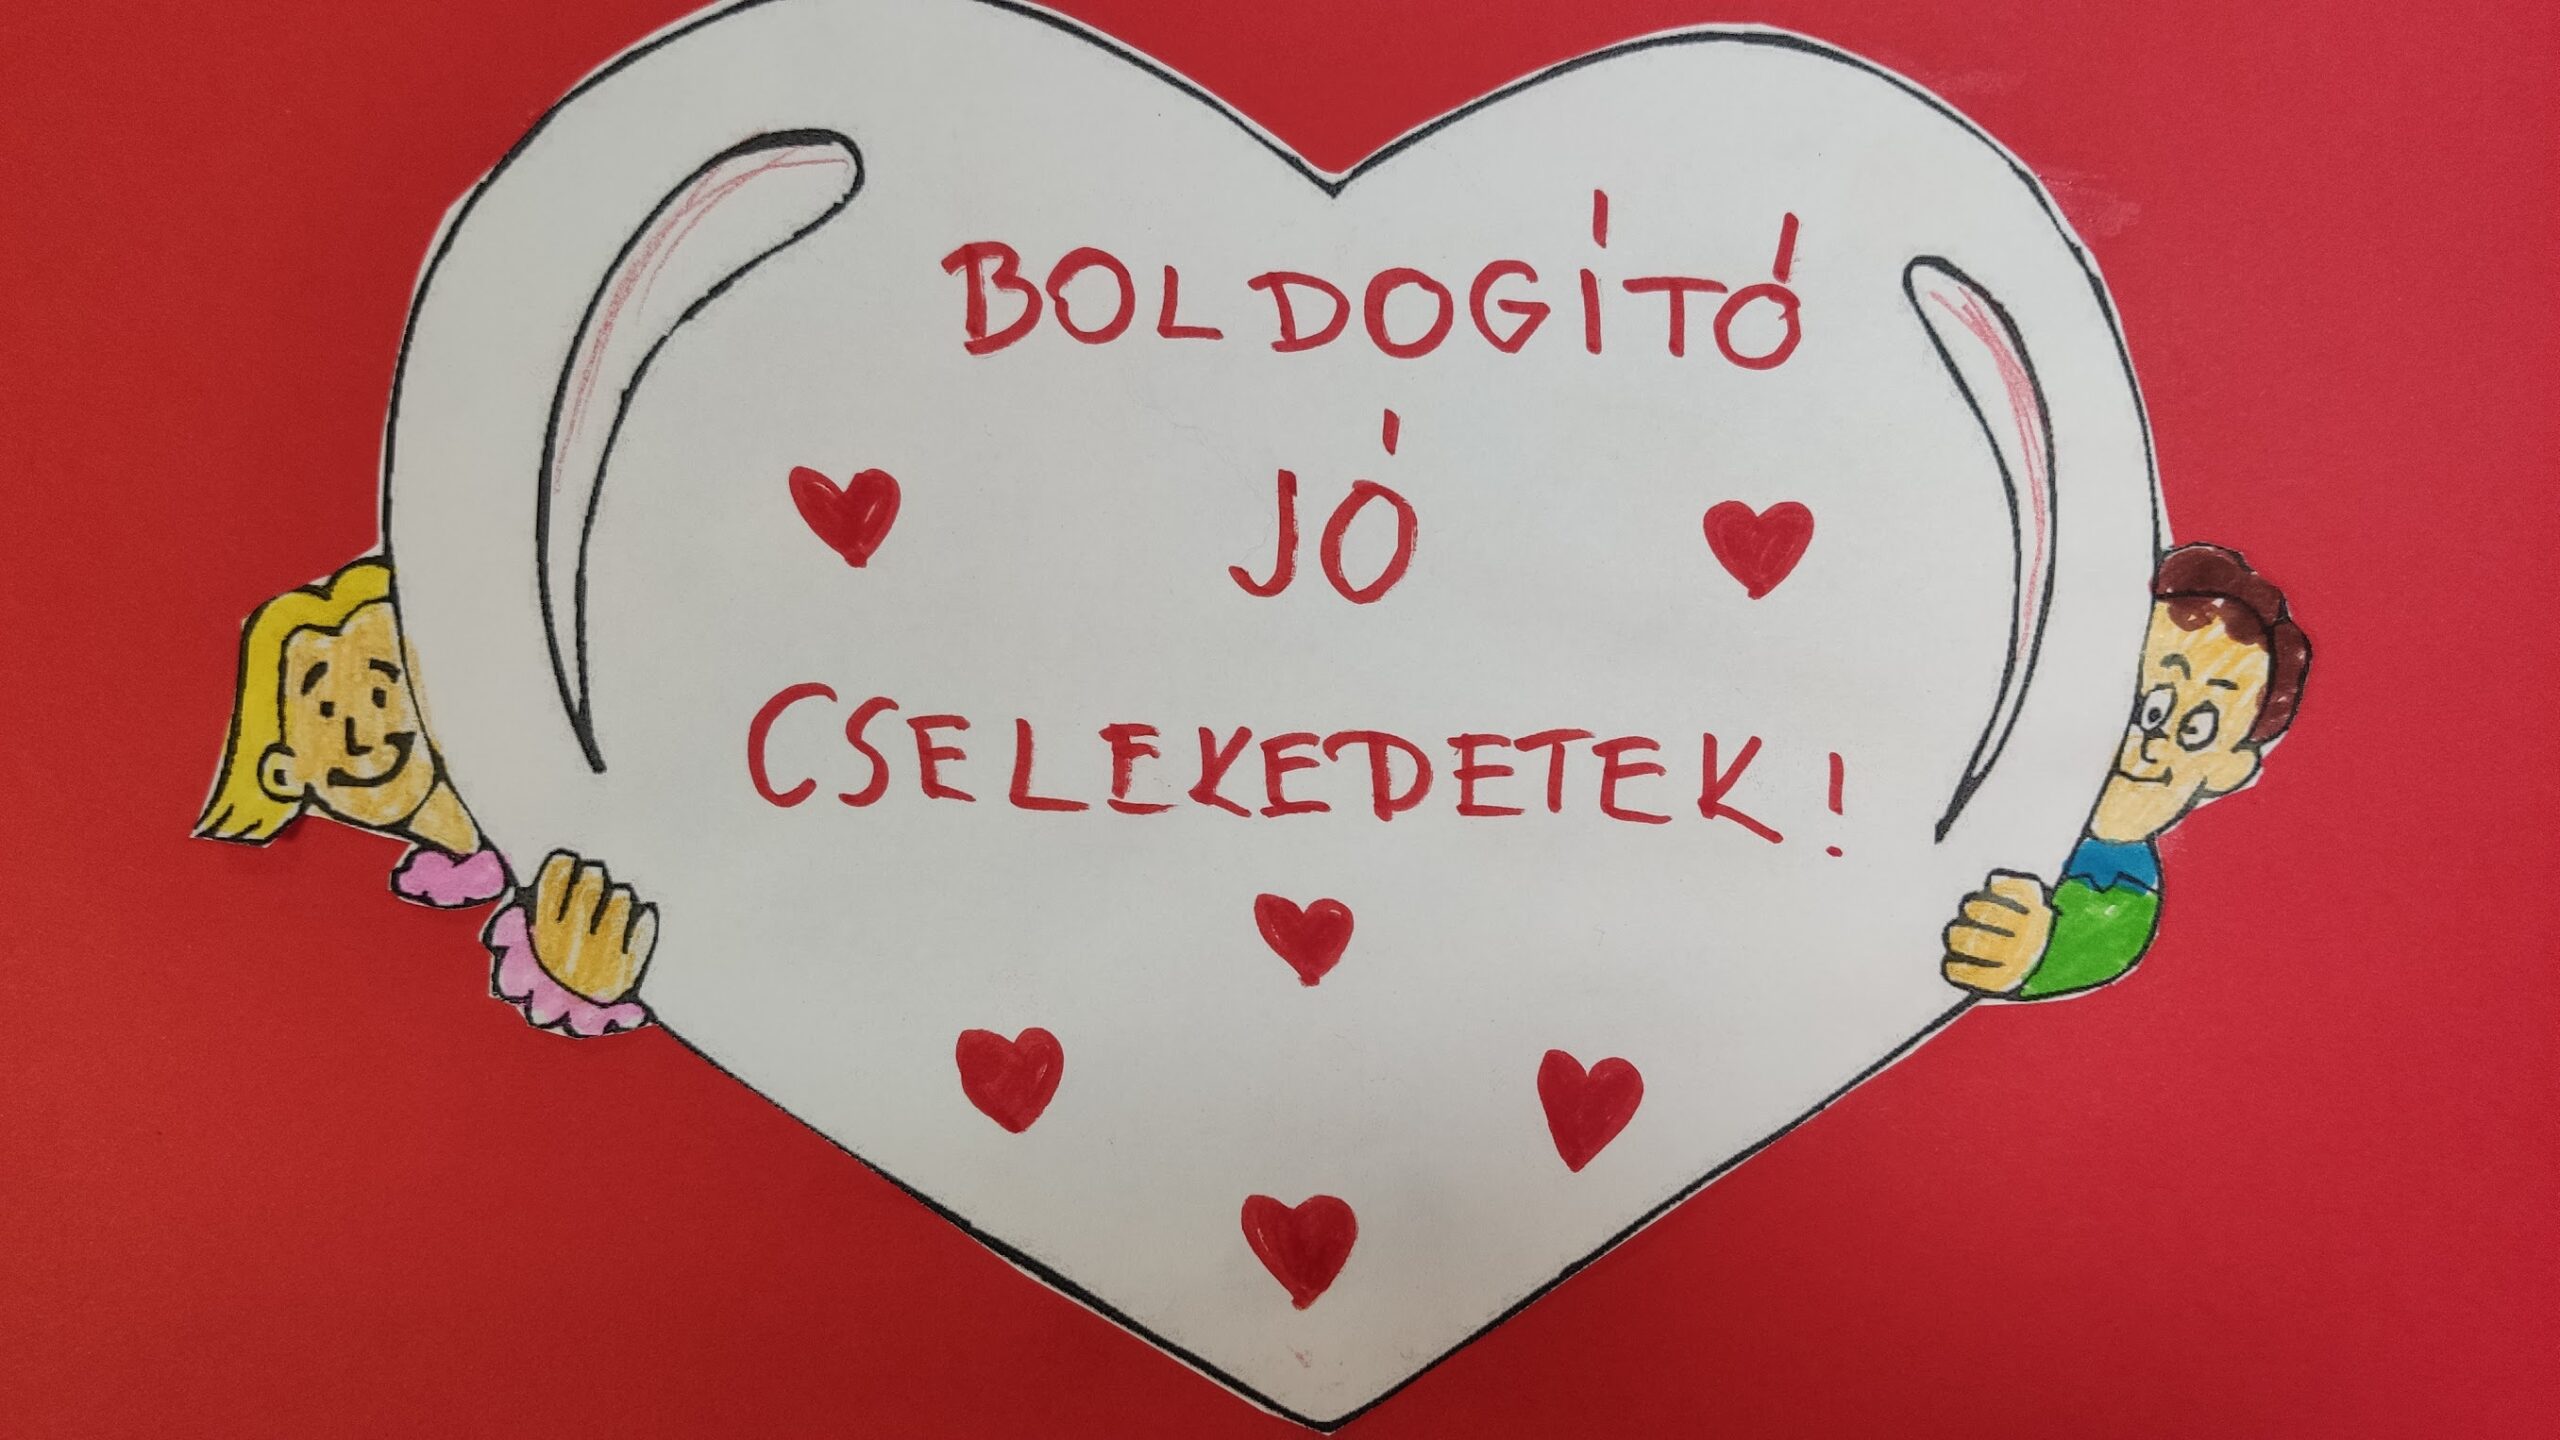 BOLDOGÍTÓ
JÓ
CSELEKEDETEK!